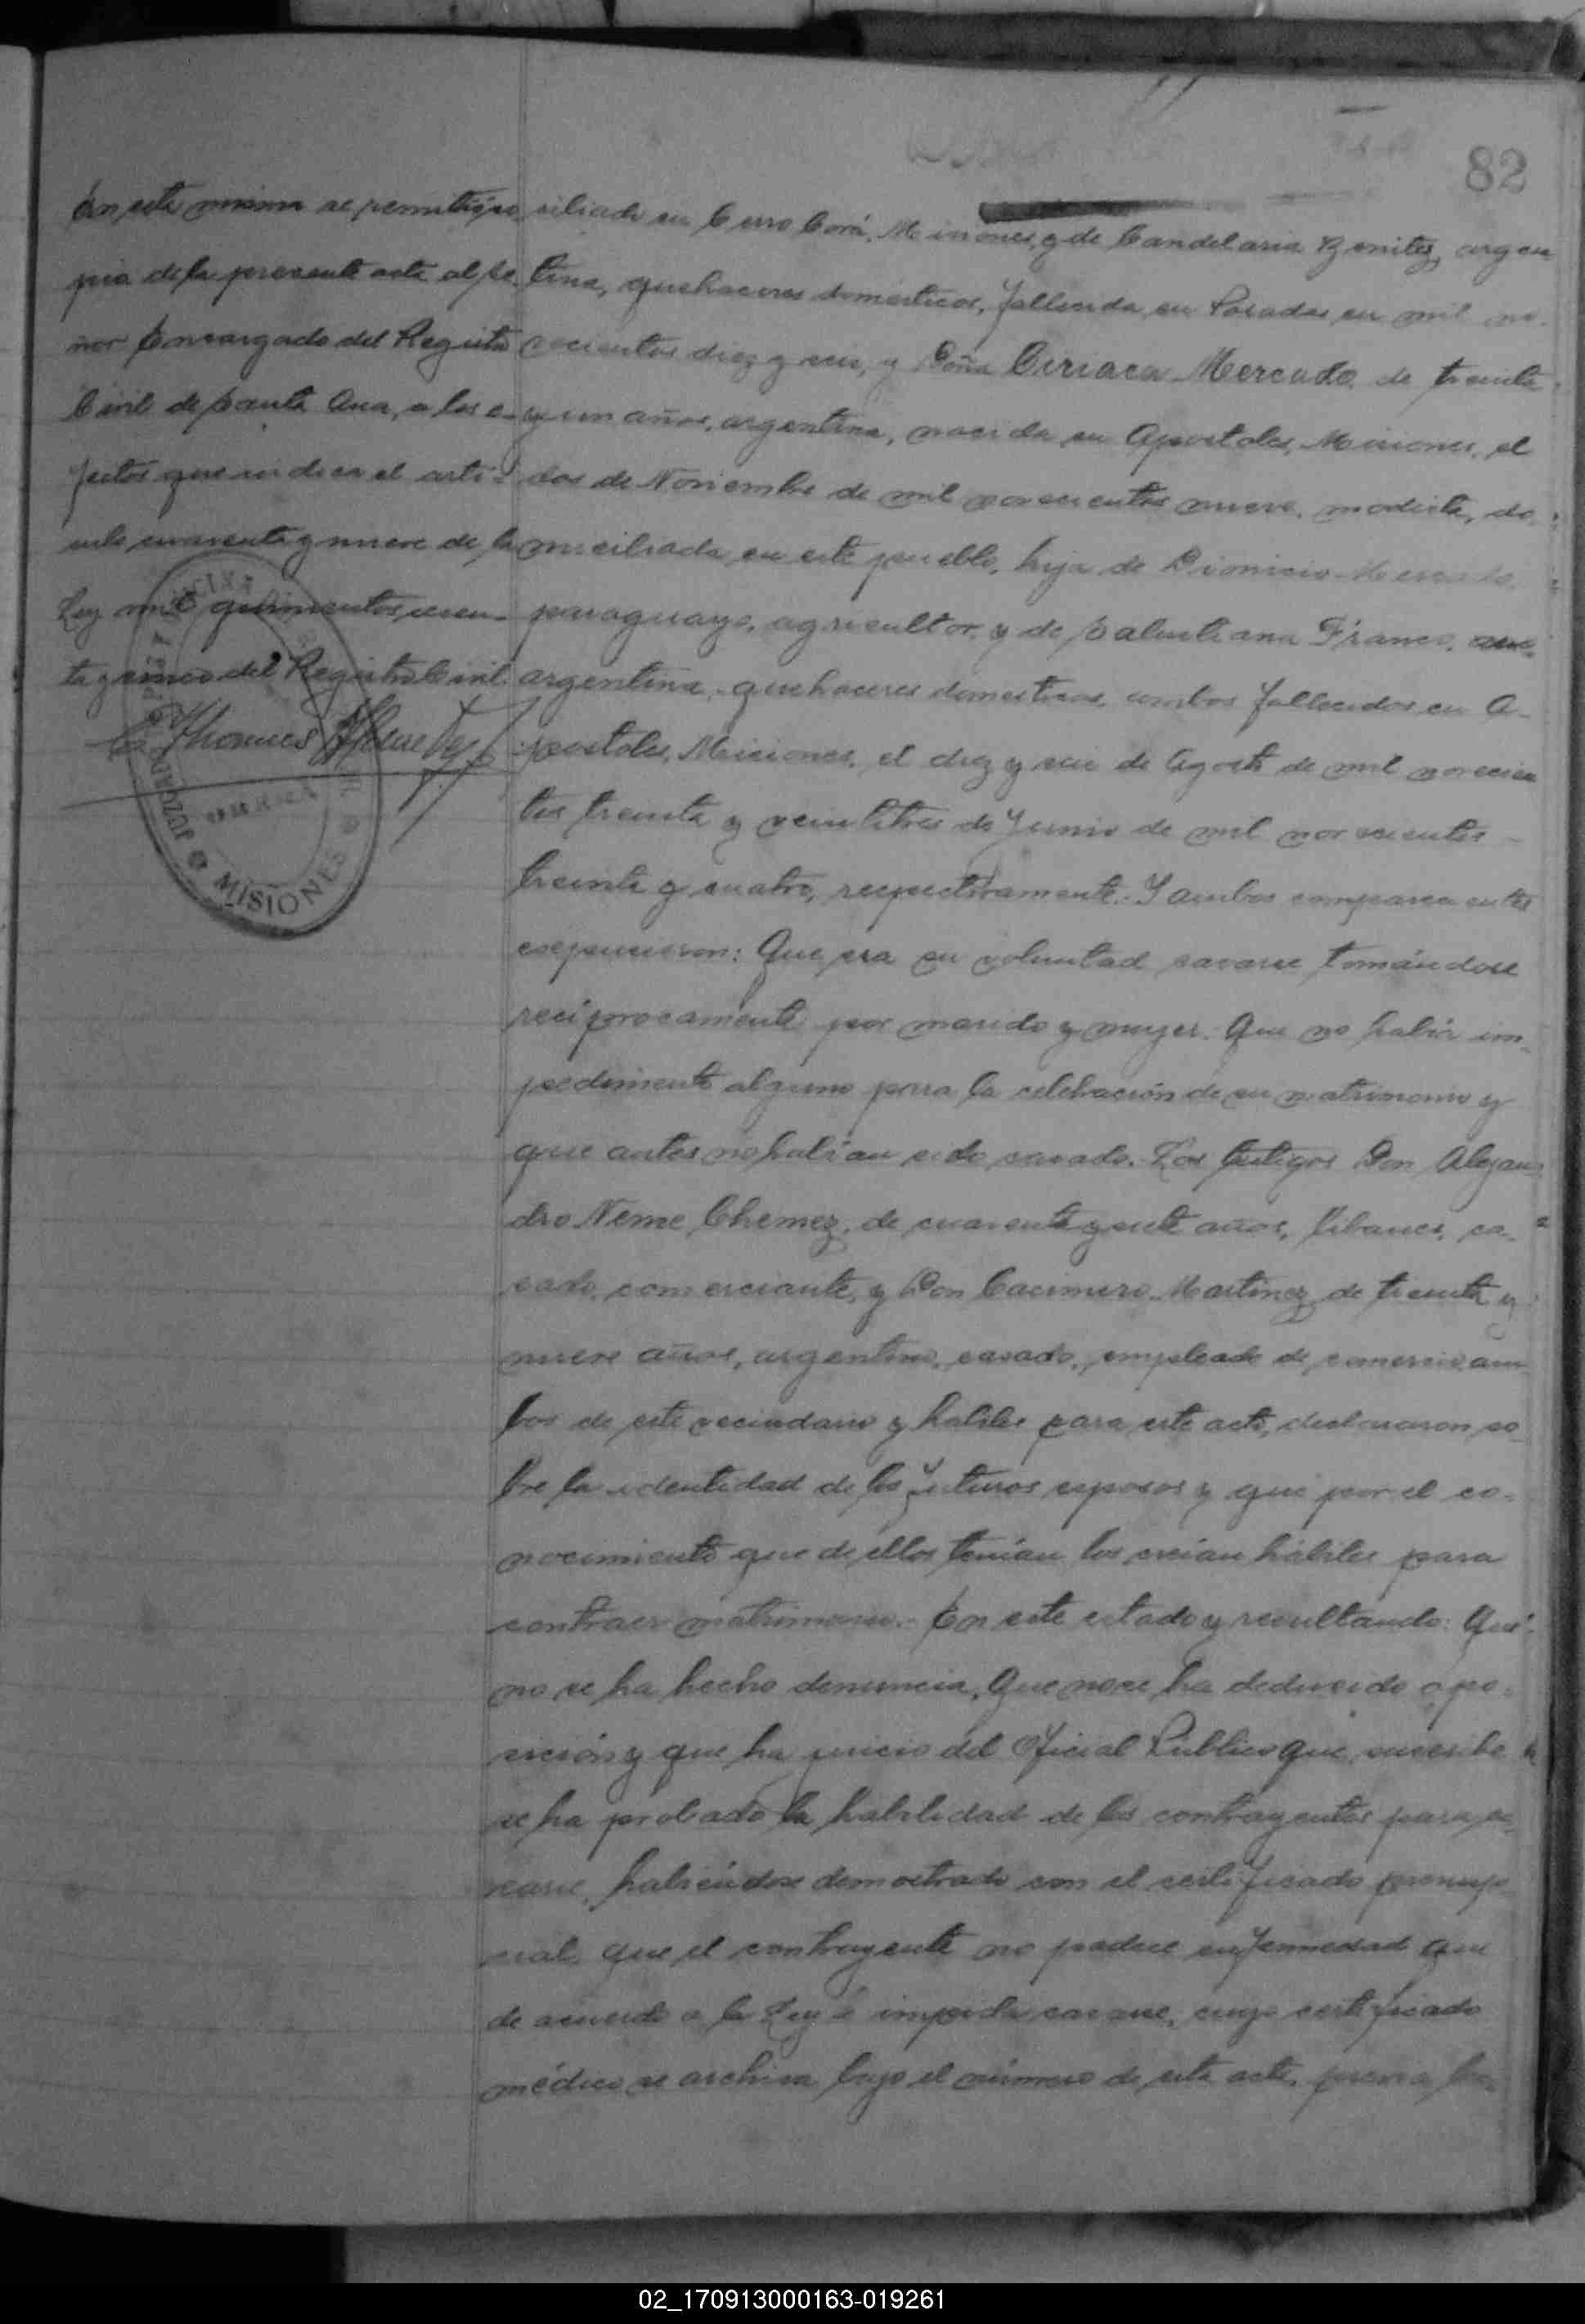 82
En esta misma se remitió co
pia de la presente acta al Se
ñor Encargado del Registro
Civil de Santa Ana, a los e-
fectos que indica el artí-
culo cuarenta y nueve de la
Ley mil quinientos sesen-
ta y cinco del Registro Civil.
MISIONES
ciliado en Cerro Corá, Misiones, y de Candelaria Benites, argen
tina, quehaceres domésticos, fallecida en Posadas en mil no-
vecientos diez y seis, y Doña Ciriaca Mercado, de treinta
y un años, argentina, nacida en Apostoles, Misiones, el
dos de Noviembre de mil novecientos nueve, modista, do
miciliada en este pueblo, hija de Dionicio Mercado,
paraguayo, agricultor, y de Salustiana Franco,
argentina, quehaceres domesticos, ambos fallecidos en A-
postoles, Misiones, el diez y seis de Agosto de mil novecien
tos treinta y veintitres de Junio de mil novecientos
treinta y cuatro, respectivamente.- Y ambos comparecientes
expusieron: Que era su voluntad casarse tomándose
recíprocamente por marido y mujer. Que no había im-
pedimento alguno para la celebración de su matrimonio y
que antes no habían sido casado. Los testigos Don Alejan-
dro Neme Chemez, de cuarenta y siete años, libanes, ca-
sado, comerciante, y Don Casimiro Martinez, de treinta y
nueve años, argentino, casado, empleado de comercio, am
bos de este vecindario y habiles para este acto, declararon so
bre la identidad de los futuros esposos y que por el co-
nocimiento que de ellos tenían los creían hábiles para
contraer matrimonio.- En este estado y resultando: Que
no se ha hecho denuncia, Que no se ha deducido opo-
sición y que ha juicio del Oficial Público que suscribe
se ha probado la habilidad de los contrayentes para ca
sarse, habiéndose demostrado con el certificado prenup
cial, que el contrayente no padece enfermedad que
de acuerdo a la Ley le impida casarse, cuyo certificado
médico se archiva bajo el número de esta acta, previa
02_170913000163-019261